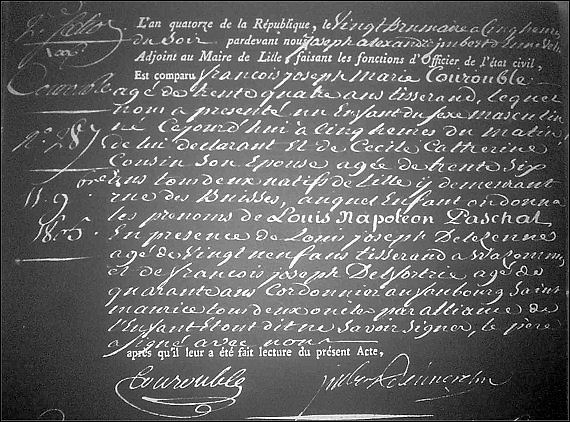 L'an quatorze de la République, le Vingt Brumaire a Cinq heures
du Soir pardevant nous joseph alexandre
Adjoint au Maire de Lille, faisant les fonctions d'Officier de l'état civil,
Est comparu françois joseph Marie Courouble
Courouble
agé de trente quatre ans tisserand, lequel
nous a présenté un Enfant du sexe masculin
N.º 287
né Cejourd'hui a Cinq heures du matin,
de lui déclarant Et de Cecile Catherine
Cousin Son Epouse agée de trente Six
ans tous deux natifs de Lille y demeurant
rue des Buisses, auquel Enfant on donna
les prenoms de Louis Napoléon Paschal
1805.
En presence de Louis joseph Delezenne
agé de Vingt neuf ans tisserand a Wazemmes
et de françois joseph Delfortrie agé de
quarante ans Cordonnier au faubourg Saint
maurice tous deux oncles par alliance de
l'Enfant Et ont dit ne Savoir Signer, le pere
a signé avec nous
après qu'il leur a été fait lecture du présent Acte,
Courouble